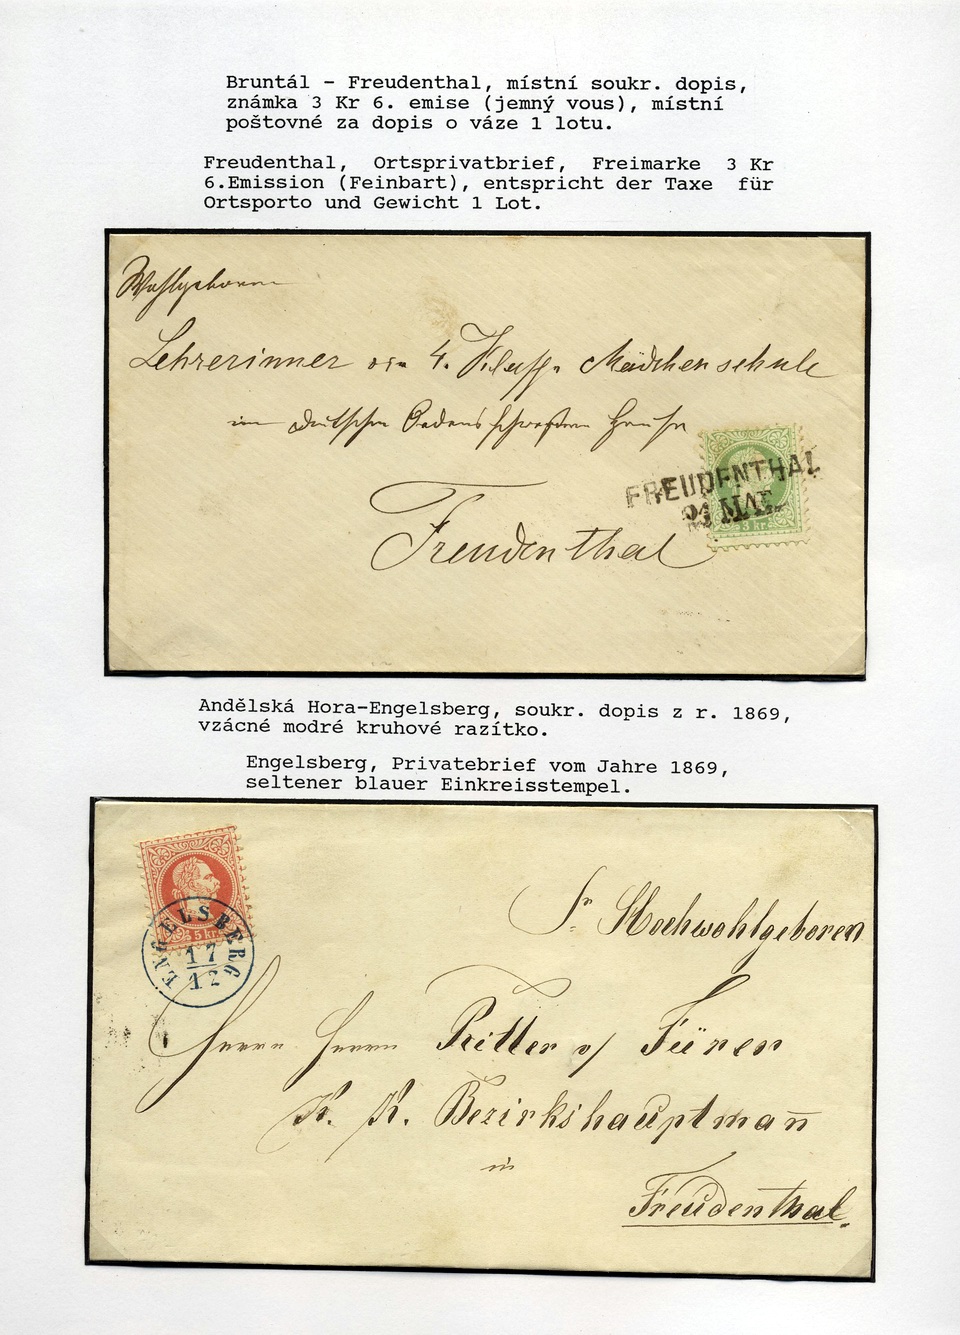 Bruntál - Freudenthal, místní soukr. dopis,
známka 3 Kr 6. emise (jemný vous), místní
poštovné za dopis o váze 1 lotu.
Freudenthal, Ortsprivatbrief, Freimarke 3 Kr
6.Emission (Feinbart), entspricht der Taxe für
Ortsporto und Gewicht 1 Lot.
Wohlgeboren
Lehrerinner 4. Klasse Mädchenschule
im deutschen Ordensschwestern Hause
FREUDENTHAL
21 MAI
3 kr
Freudenthal
Andělská Hora-Engelsberg, soukr. dopis z r. 1869,
vzácné modré kruhové razítko.
Engelsberg, Privatebrief vom Jahre 1869,
seltener blauer Einkreisstempel.
5 kr
ENGELSBERG
17
12
Sr Hochwohlgeboren
Herrn Herrn Ritter v/ Fürer
K. K. Bezirkshauptman̄
in
Freudenthal.